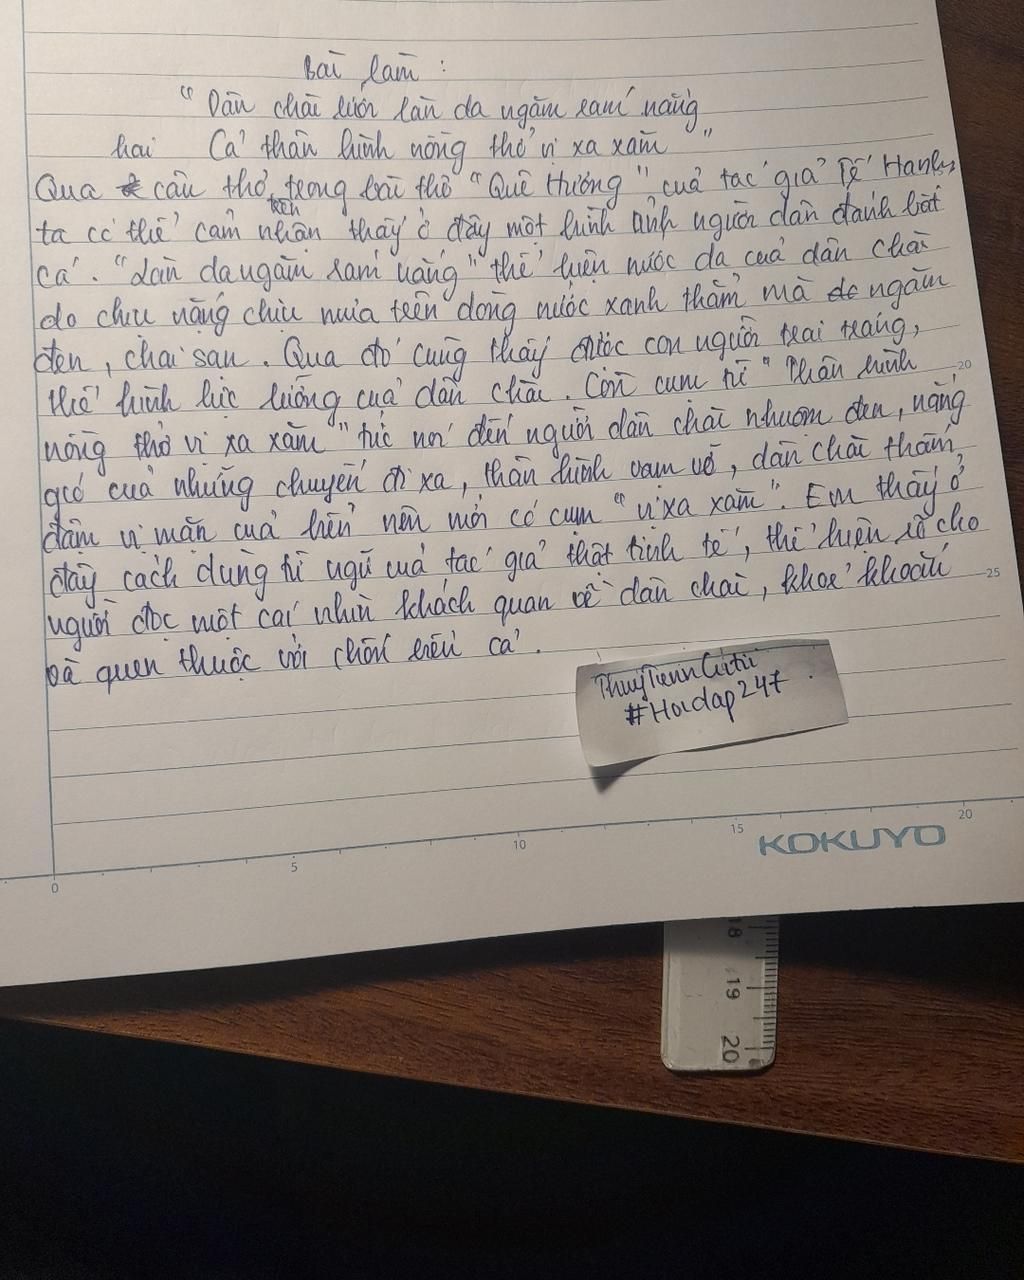 Bài làm :
“ Dân chài lưới làn da ngăm rám nắng
Cả thân hình nồng thở vị xa xăm ”
hai
Qua câu thơ trên trong bài thơ “ Quê Hương ” của tác giả Tế Hanh,
ta có thể cảm nhận thấy ở đây một hình ảnh người dân đánh bắt
cá. “Làn da ngăm rám nắng” thể hiện nước da của dân chài
do chịu nắng chịu mưa trên dòng nước xanh thẳm mà ngăm
đen, chai sạn. Qua đó cũng thấy được con người trai tráng,
thể hình lực lưỡng của dân chài. Còn cụm từ “ Thân hình
nồng thở vị xa xăm ” tức nói đến người dân chài nhuốm đen, nắng
gió của những chuyến đi xa, thân hình vạm vỡ, dân chài thấm,
đậm vị mặn của biển nên mới có cụm “ vị xa xăm ”. Em thấy ở
đây cách dùng từ ngữ của tác giả thật tinh tế, thể hiện rõ cho
người đọc một cái nhìn khách quan về dân chài, khoẻ khoắn
và quen thuộc với chốn biển cả.
#Hoidap247
KOKUYO
0 5 10 15 20
20
25
18
19
20